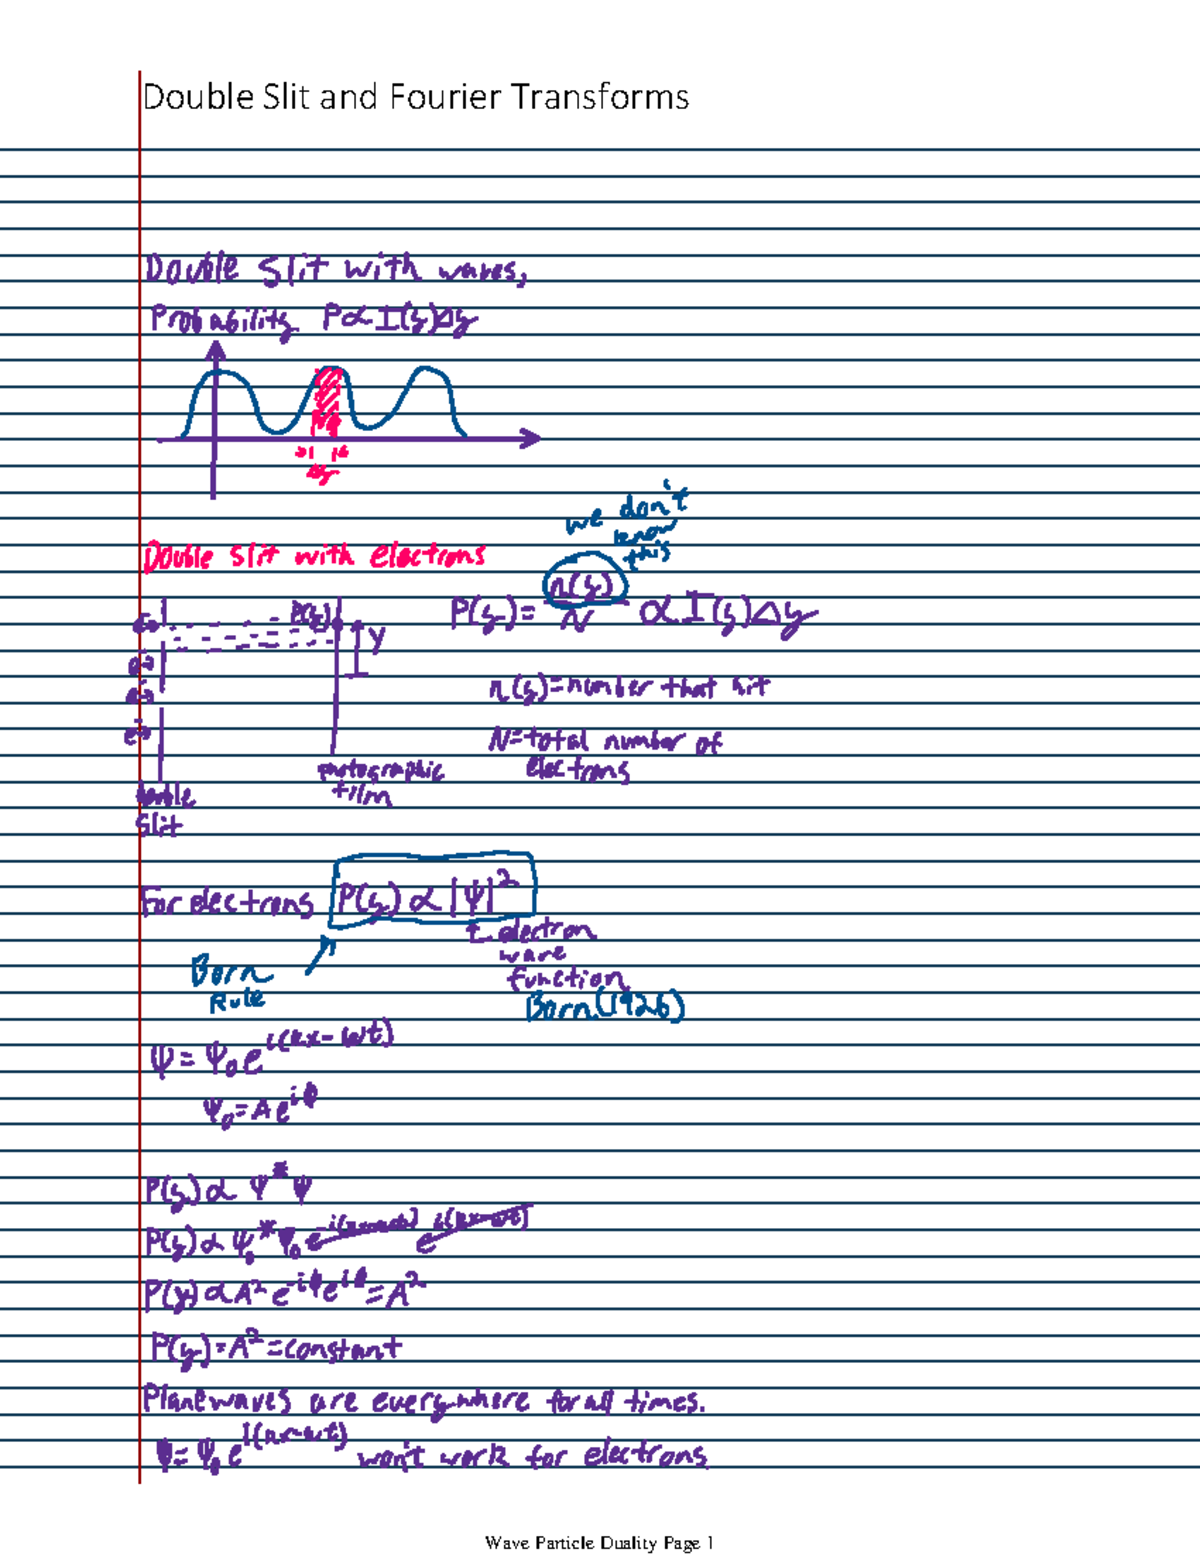 Double Slit and Fourier Transforms
Double Slit with waves,
Probability P∝I(y)Δy
Δy
Double slit with electrons
we don't
know
this
P(y)= n(y)/N ∝ I(y)Δy
P(y)
y
e-
e-
e-
e-
n(y)=number that hit
N=total number of
electrons
photographic
film
double
slit
For electrons P(y) ∝ |Ψ|²
electron
wave
function
Born (1926)
Born
Rule
Ψ = Ψ₀e^i(kx-ωt)
Ψ₀=Ae^iϕ
P(y)∝ Ψ*Ψ
P(y)∝ Ψ₀*Ψ₀ e^-i(kx-ωt) e^i(kx-ωt)
P(y)∝A² e^-iϕ e^iϕ = A²
P(y)=A²=constant
Planewaves are everywhere for all times.
Ψ=Ψ₀e^i(kx-ωt) won't work for electrons
Wave Particle Duality Page 1